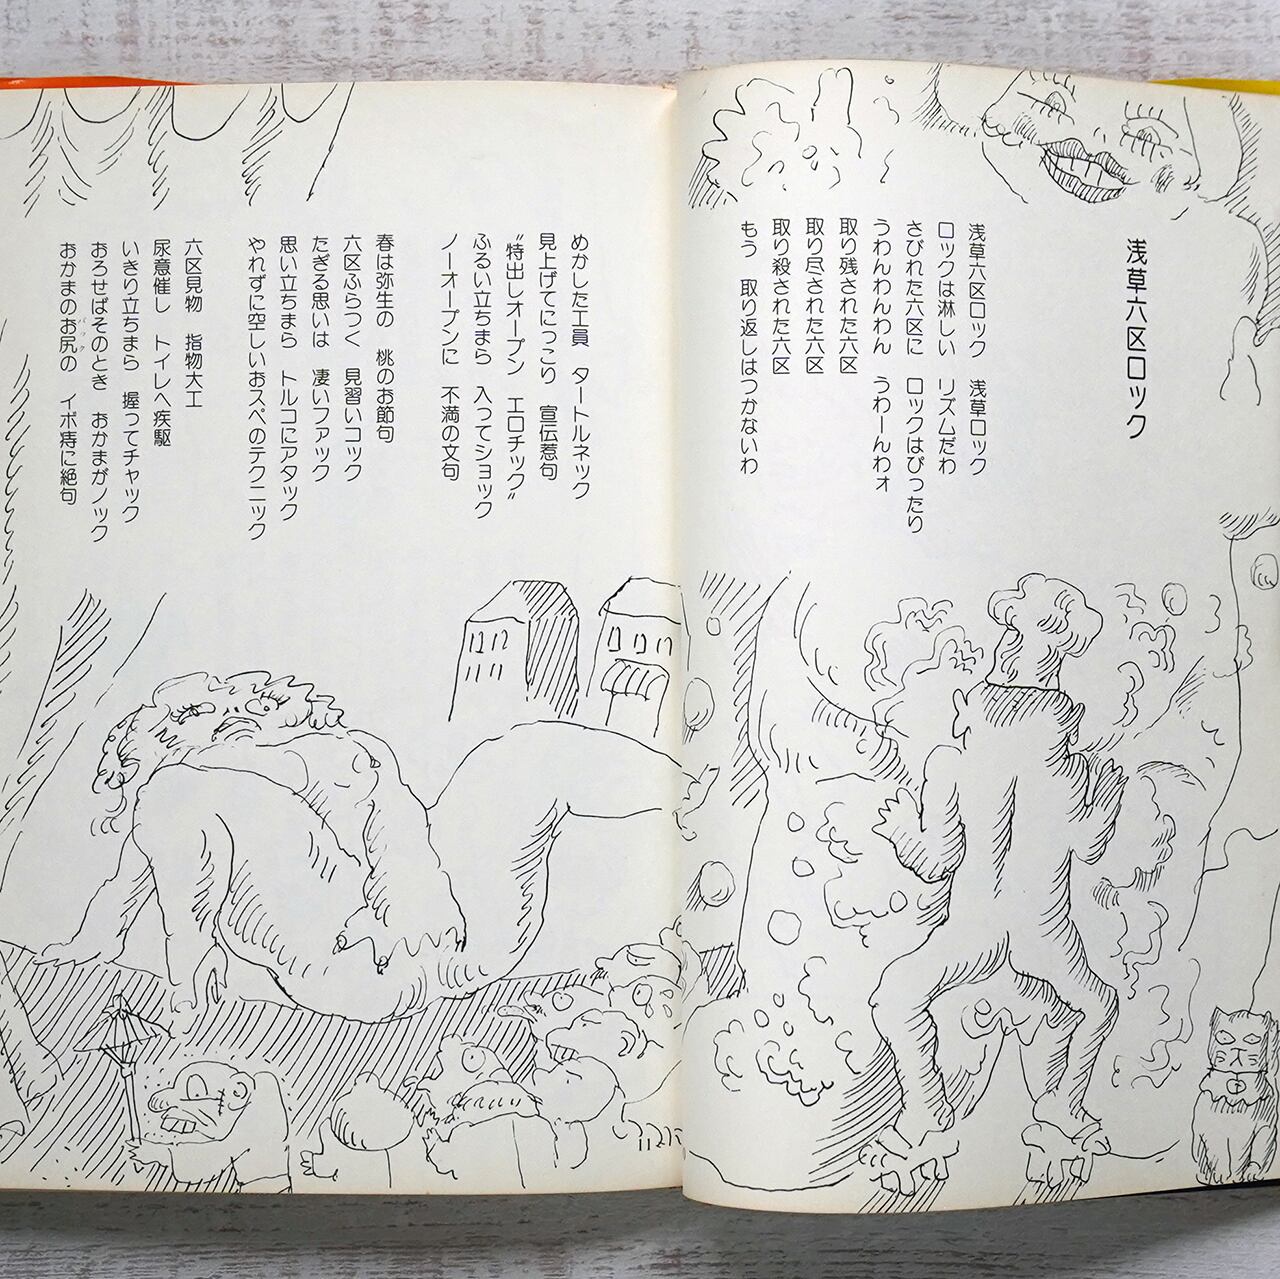 浅草六区ロック
浅草六区ロック　浅草ロック
ロックは淋しい　リズムだわ
さびれた六区に　ロックはぴったり
うわんわんわん　うわーんわォ
取り残された六区
取り尽された六区
取り殺された六区
もう　取り返しはつかないわ
めかした工員　タートルネック
見上げてにっこり　宣伝惹句
〝特出しオープン　エロチック〟
ふるい立ちまら　入ってショック
ノーオープンに　不満の文句
春は弥生の　桃のお節句
六区ふらつく　見習いコック
たぎる思いは　凄いファック
思い立ちまら　トルコにアタック
やれずに空しいおスペのテクニック
六区見物　指物大工
尿意催し　トイレへ疾駆
いきり立ちまら　握ってチャック
おろせばそのとき　おかまがノック
おかまのお尻の　イボ痔に絶句
バック